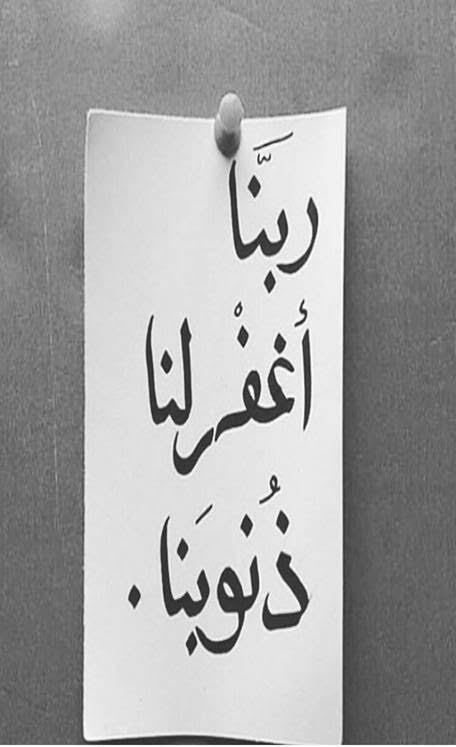 ربَّنا
أغفْر لنا
ذُنوبَنا .